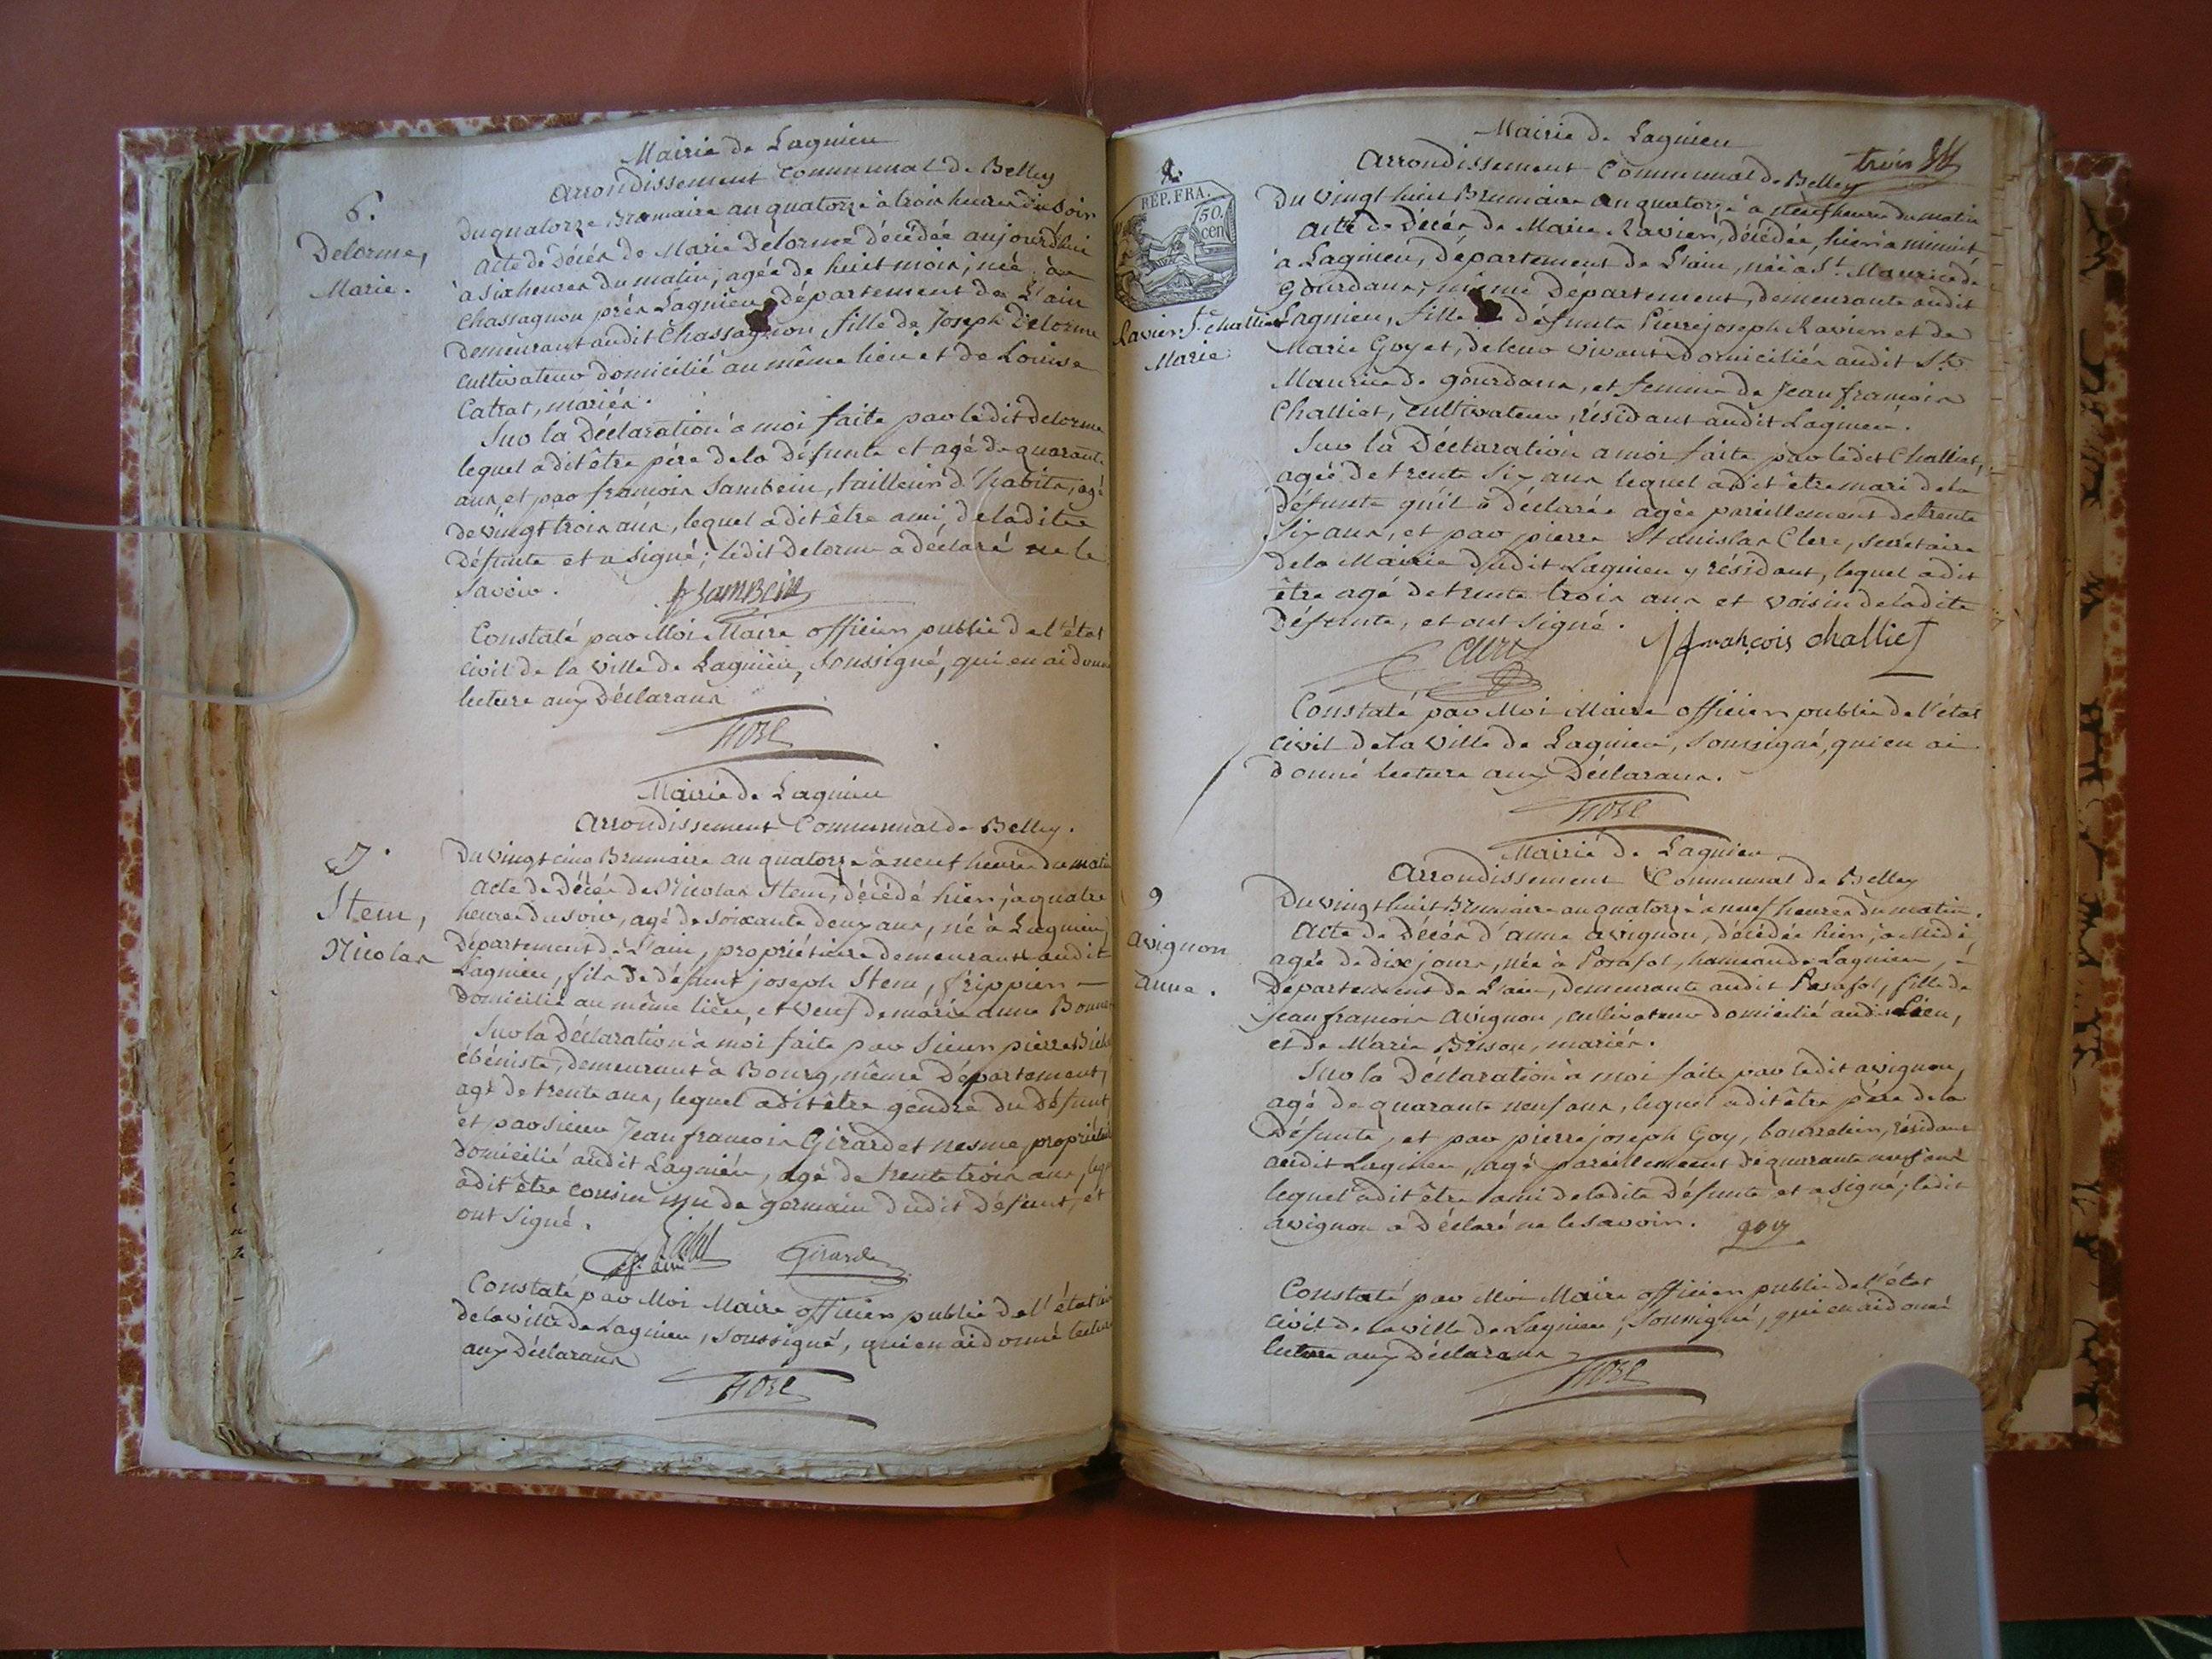 Mairie de Lagnieu
Arrondissement Communal de Belley
6.
Delorme,
Marie.
Du quatorze Brumaire an quatorze à trois heures du soir
Acte de Décés de Marie Delorme décédée aujourd'hui
à six heures du matin, agée de huit mois, née à
Chassagnou près Lagnieu, département de L'ain
demeurant audit Chassagnon, fille de Joseph Delorme
cultivateur domicilié au même lieu et de Louise
Catrat, mariés.
Sur la Déclaration à moi faite par ledit Delorme
lequel a dit être père de la défunte et agé de quarante
ans, et par françois Sambein, tailleur d'habits, agé
de vingt trois ans, lequel a dit être ami de ladite
Défunte et a signé; ledit Delorme a déclaré ne le
savoir.
fsamBein
Constaté par Moi Maire officier public de l'état
civil de la ville de Lagnieu, soussigné, qui en ai donné
lecture aux Déclarans
Mairie de Lagnieu
Arrondissement Communal de Belley.
7.
Stem,
Nicolas
Du vingt cinq Brumaire an quatorze à neuf heures du matin
Acte de Décés de Nicolas Stem, décédé hier, à quatre
heures du soir, agé de soixante deux ans, né à Lagnieu,
Département de L'ain, propriétaire demeurant audit
Lagnieu, fils de défunt joseph Stem, frippier
domicilié au même lieu, et veuf de marie anne Bonne
Sur la Déclaration à moi faite par Sieur pierre
ébéniste, demeurant à Bourg, même Département,
agé de trente ans, lequel a dit être gendre du Défunt,
et par sieur Jean françois Girardet nesme, propriétaire
domicilié audit Lagnieu, agé de trente trois ans, lequel
a dit être cousin issu de germain dudit Défunt, et
ont signé.
Girardet
Constaté par Moi Maire officier public de l'état civil
de la ville de Lagnieu, soussigné, qui en ai donné lecture
aux Déclarans
Mairie de Lagnieu
Arrondissement Communal de Belley
trois
8.
RÉP. FRA.
50.
cen
Ravier fe challiet
Marie
Du vingt huit Brumaire an quatorze à neuf heures du matin
Acte de Décés de Marie Ravier, décédée, hier à minuit
à Lagnieu, Département de L'ain, née à St. Maurice de
Gourdans, même Département, demeurante audit
Lagnieu, fille de défunts Pierre joseph Ravier et de
Marie Goyet, de leur vivant domiciliés audit St.
Maurice de gourdans, et femme de Jean françois
Challiet, cultivateur, résidant audit Lagnieu.
Sur la Déclaration à moi faite par ledit Challiet,
agé de trente six ans lequel a dit être mari de la
défunte qu'il a déclarée agée pareillement de trente
six ans, et par pierre Stanislas Clerc, secrétaire
de la Mairie dudit Lagnieu y résidant, lequel a dit
être agé de trente trois ans et voisin de ladite
Défunte, et ont signé.
Clerc
jfrançois challiet
Constaté par Moi Maire officier public de l'état
civil de la ville de Lagnieu, soussigné, qui en ai
donné lecture aux Déclarans.
Mairie de Lagnieu
Arrondissement Communal de Belley
9
avignon
anne.
Du vingt huit Brumaire an quatorze à neuf heures du matin.
Acte de Décés d'anne avignon, décédée hier, à Midi,
agée de dix jours, née à Posafol, hameau de Lagnieu,
Département de L'ain, demeurante audit Posafol, fille de
jean françois avignon, cultivateur domicilié audit Lieu,
et de Marie Brison, mariés.
Sur la Déclaration à moi faite par ledit avignon,
agé de quarante neuf ans, lequel a dit être père de la
Défunte, et par pierre joseph Goy, bourrelier, résidant
audit Lagnieu, agé pareillement de quarante neuf ans
lequel a dit être ami de ladite Défunte et a signé; ledit
avignon a Déclaré ne le savoir.
goy
Constaté par Moi Maire officier public de l'état
civil de la ville de Lagnieu, soussigné, qui en ai donné
lecture aux Déclarans